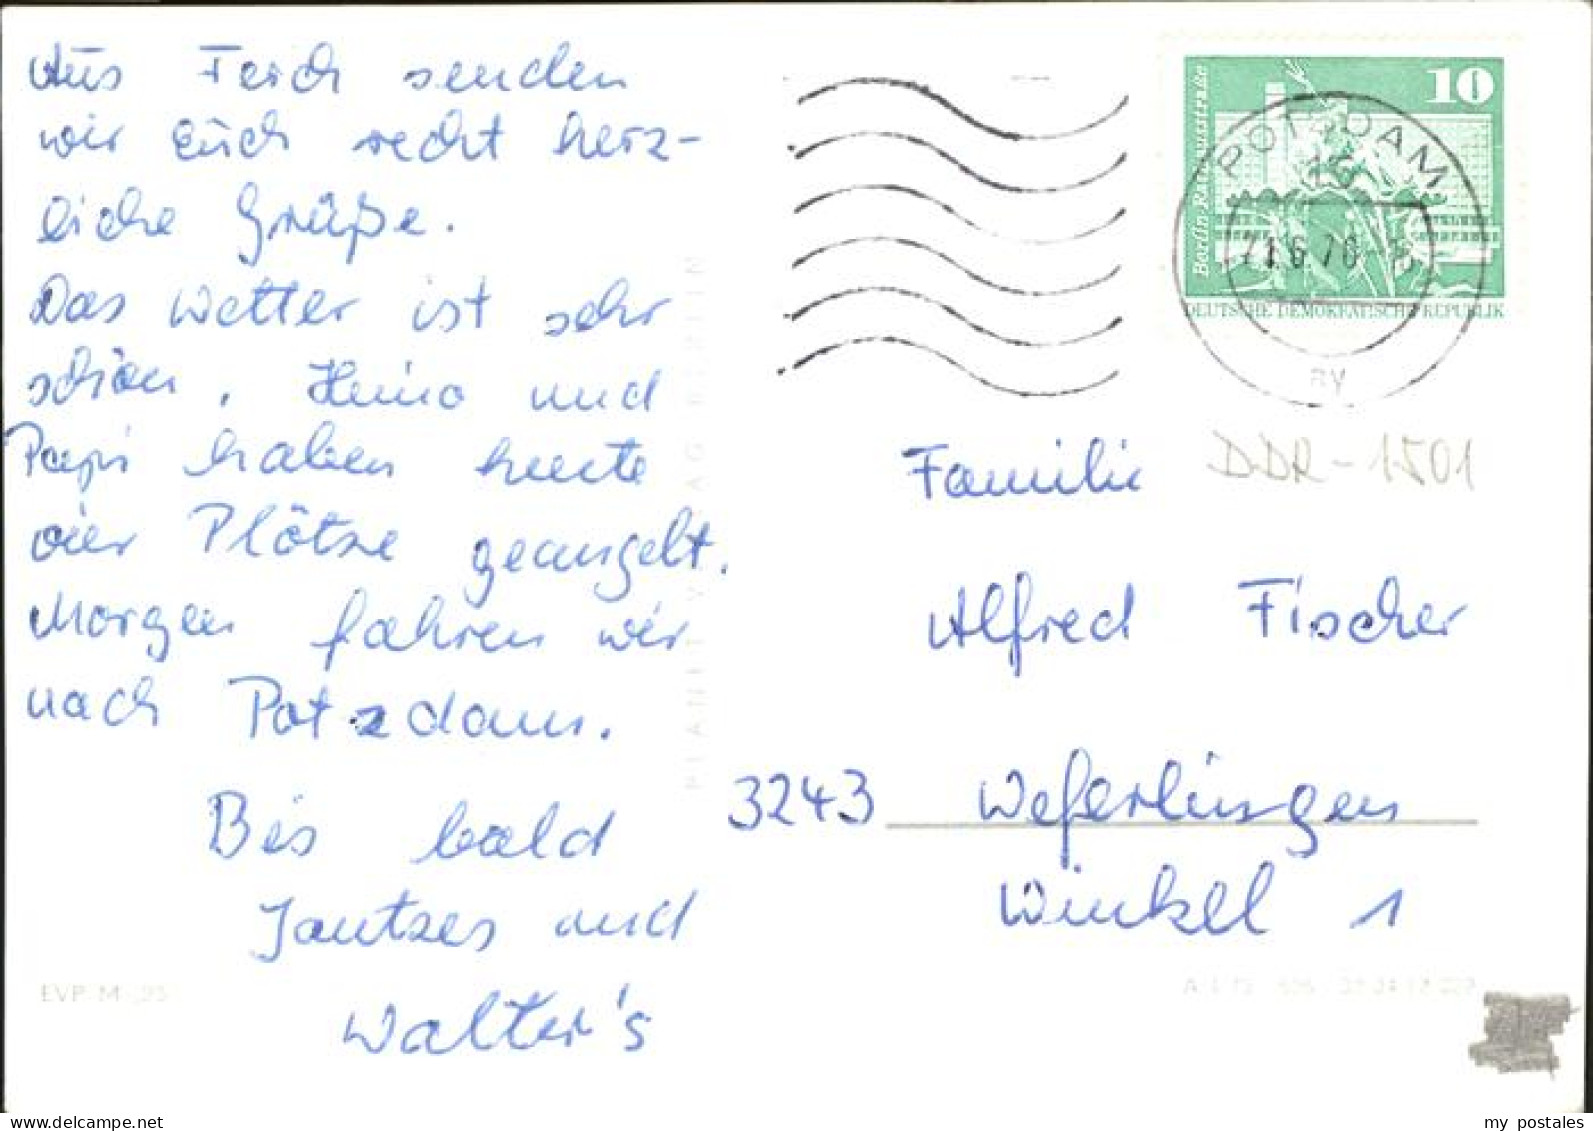 Aus Ferch senden
wir Euch recht herz-
liche Grüße.
Das Wetter ist sehr
schön. Heino und
Papi haben heute
vier Plötze geangelt.
Morgen fahren wir
nach Potzdam.
Bis bald
Jautzes und
Walter's
PLANET VERLAG BERLIN
EVP M -,95
10
Berlin-Rathausstraße
DEUTSCHE DEMOKRATISCHE REPUBLIK
POTSDAM
ay
DDR-1501
Familie
Alfred Fischer
3243 Weferlingen
Winkel 1
my postales